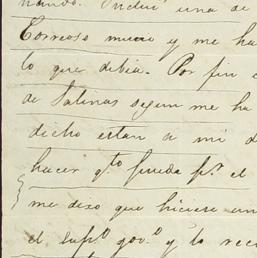 nando. Incluí una de
Correoso mucio y me ha
lo que debia. Por fin
de Salinas segun me ha
dicho estan a mi d
hacer q.to pueda p.a el
me dexo que hiciese un
el sup.r gov.o y lo reci